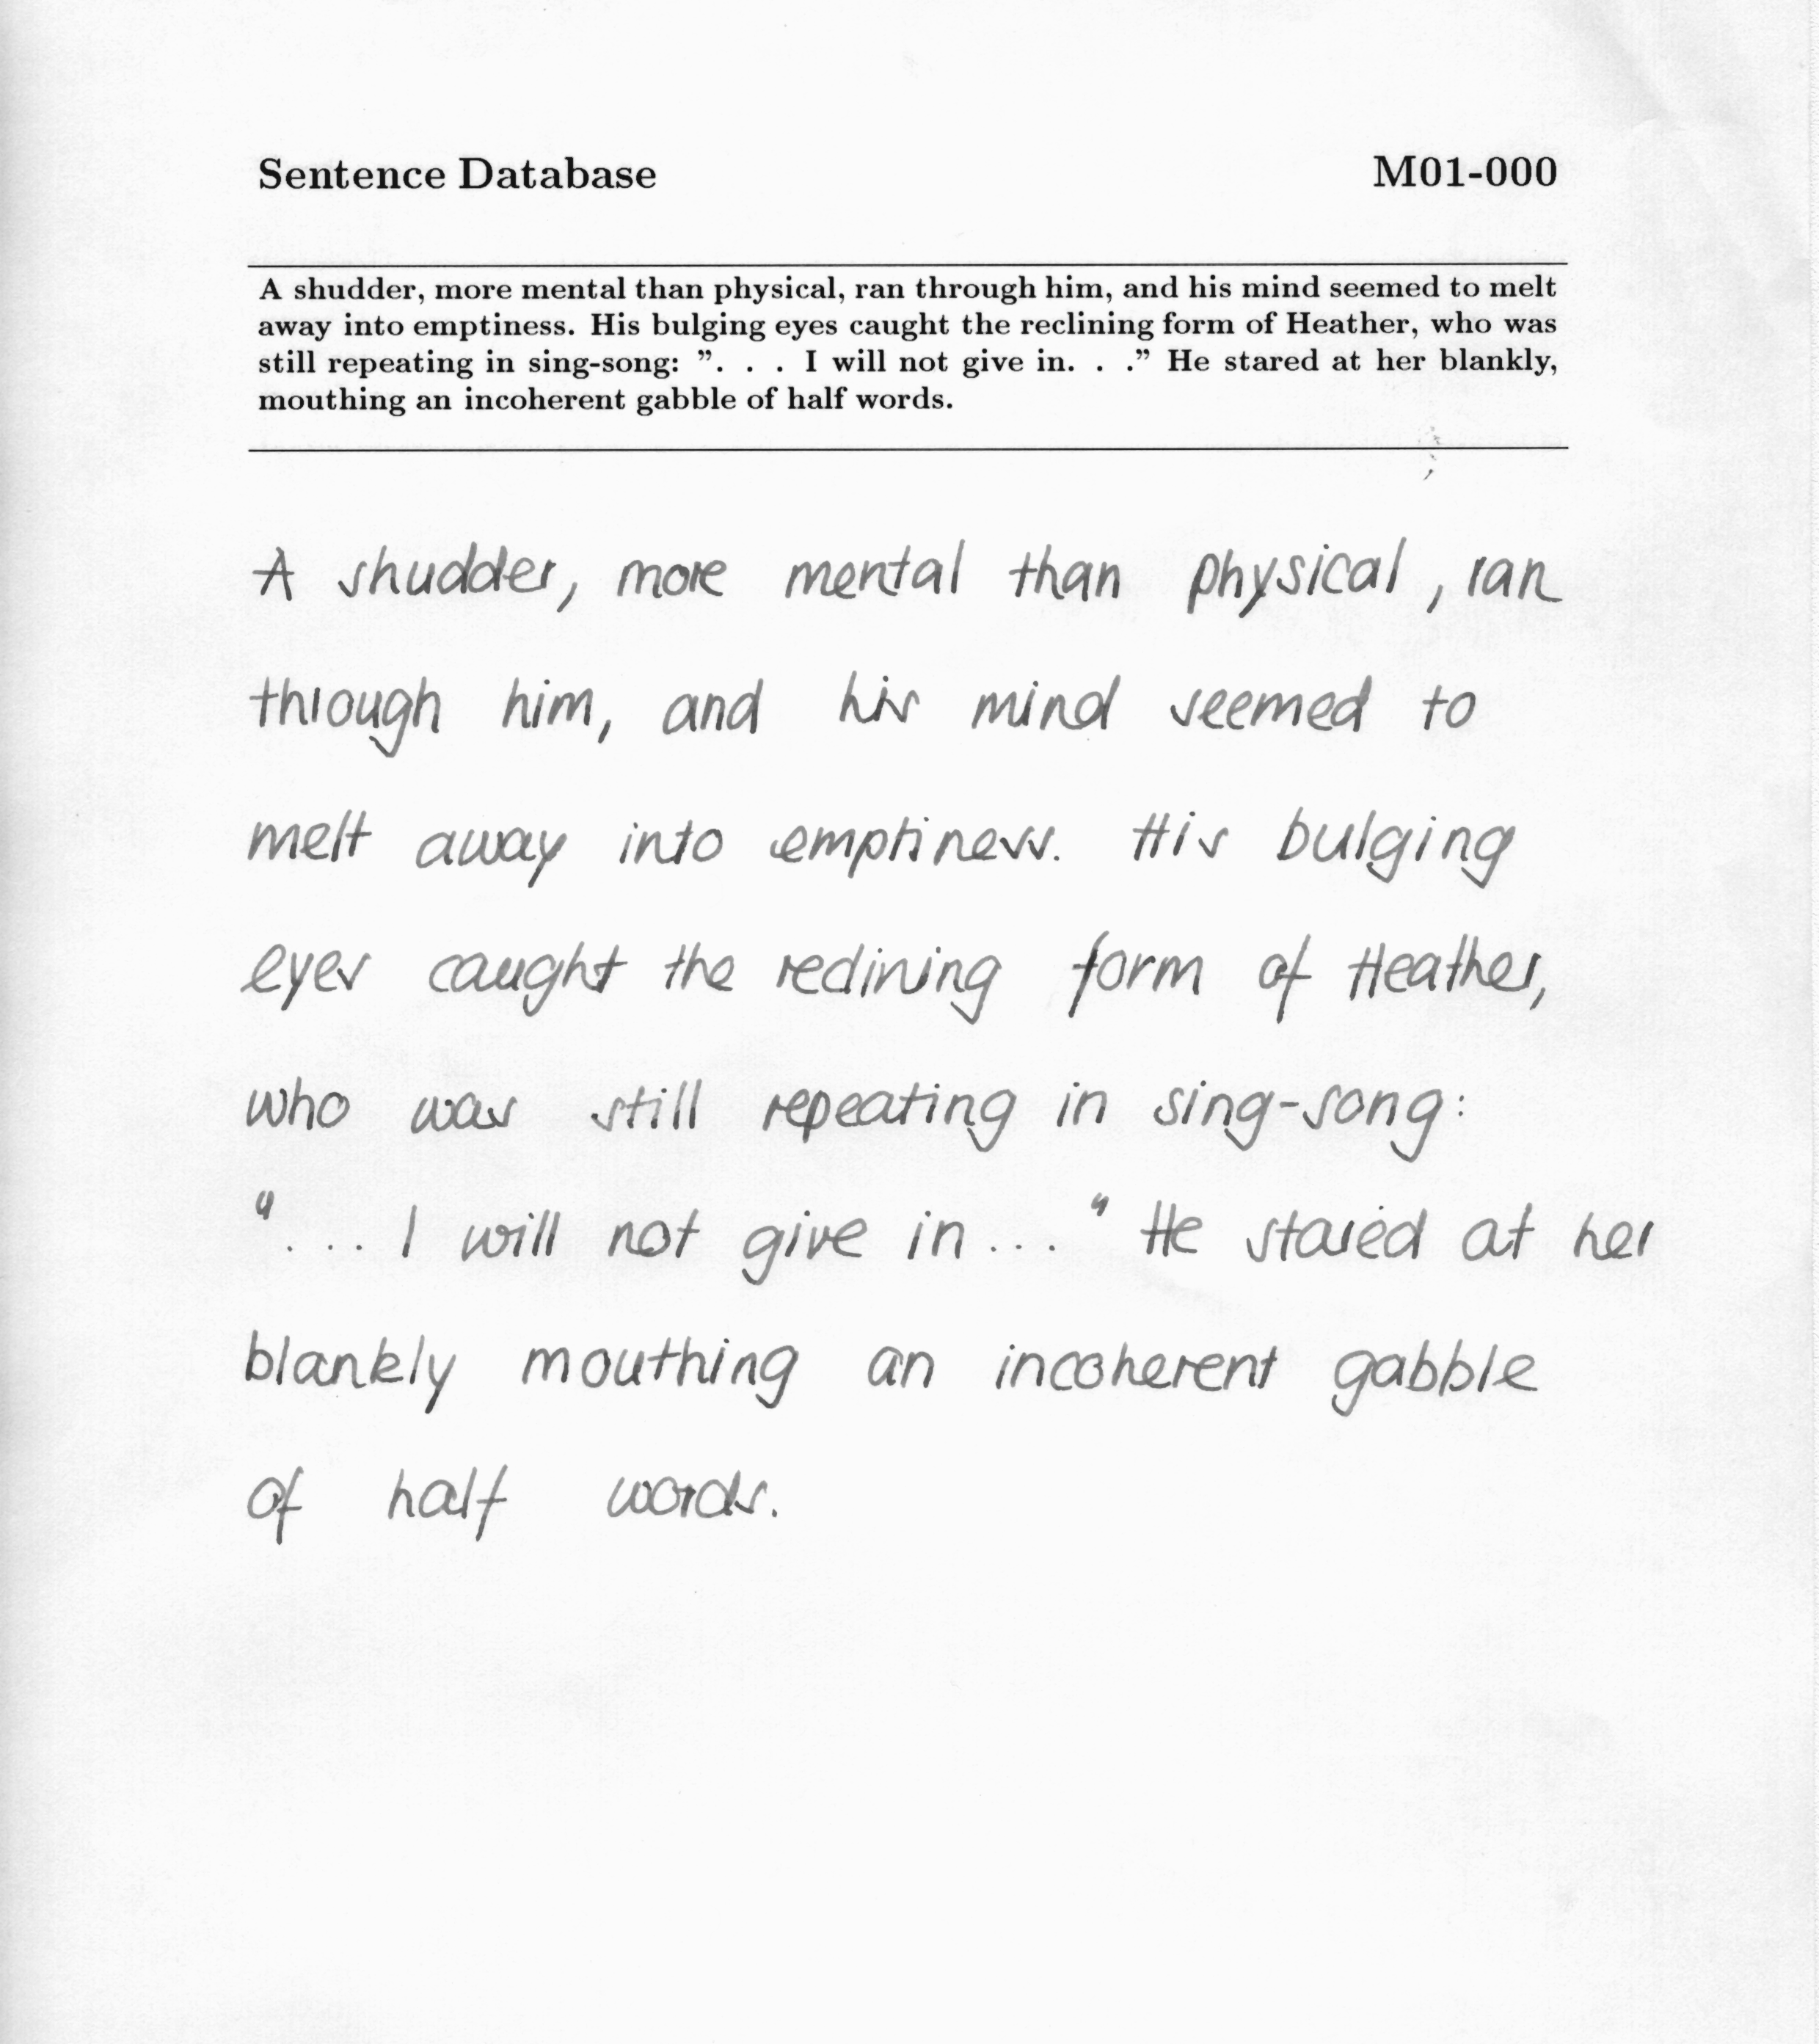 Sentence Database M01-000
A shudder, more mental than physical, ran through him, and his mind seemed to melt
away into emptiness. His bulging eyes caught the reclining form of Heather, who was
still repeating in sing-song: ”. . . I will not give in. . .” He stared at her blankly,
mouthing an incoherent gabble of half words.
A shudder, more mental than physical, ran
through him, and his mind seemed to
melt away into emptiness. His bulging
eyes caught the reclining form of Heather,
who was still repeating in sing-song:
"... I will not give in..." He stared at her
blankly mouthing an incoherent gabble
of half words.